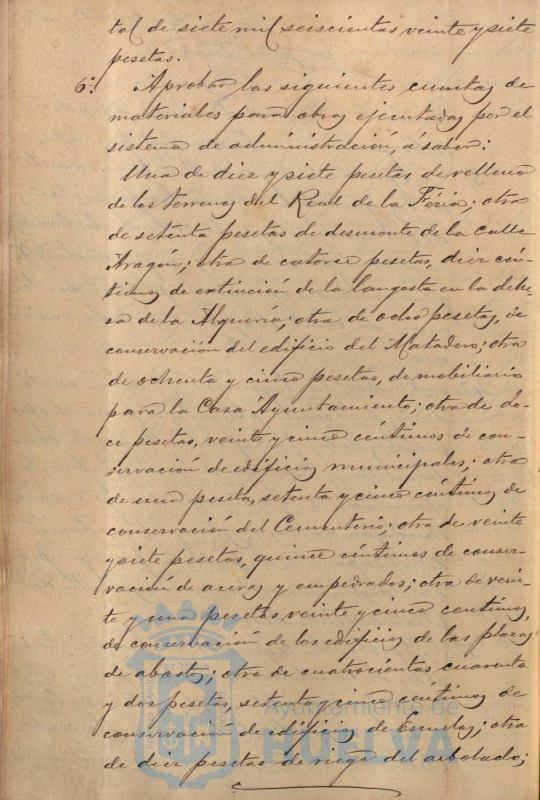 tal de siete mil seiscientas veinte y siete
pesetas.
6º. Aprobar las siguientes cuentas de
materiales para obras ejecutadas por el
sistema de administración, á saber:
Una de diez y siete pesetas de relleno
de los terrenos del Real de la Féria; otra
de setenta pesetas de desmonte de la calle
Aragon; otra de catorce pesetas, diez cén-
timos de extinción de la langosta en la dehe-
sa de la Alqueria; otra de ocho pesetas, de
conservación del edificio del Matadero; otra
de ochenta y cinco pesetas, de mobiliario
para la Casa Ayuntamiento; otra de do-
ce pesetas, veinte y cinco céntimos de con-
servación de edificios municipales; otra
de una peseta, setenta y cinco céntimos de
conservación del Cementerio; otra de veinte
y siete pesetas, quince céntimos de conser-
vación de aceras y empedrados; otra de vein-
te y una pesetas veinte y cinco centimos,
de conservación de los edificios de las plazas
de abastos; otra de cuatrocientas cuarenta
y dos pesetas, setenta y cinco céntimos de
conservación de edificios de Escuelas; otra
de diez pesetas de riego del arbolado;
Ayuntamiento de
HUELVA